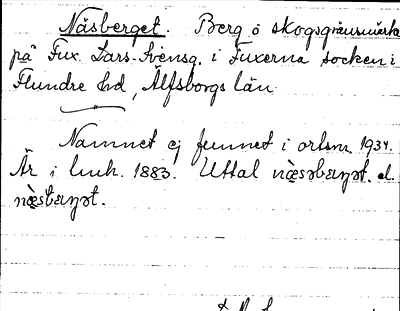 Näsberget. Berg o skogsgränsmärke
på Fux. Lars-Svensg. i Fuxerna socken i
Flundre hd, Älfsborgs län.
Namnet ej funnet i orten 1934.
Är i 1883. Uttal næ̀sbærjət. el.
næ̀stbærjət.